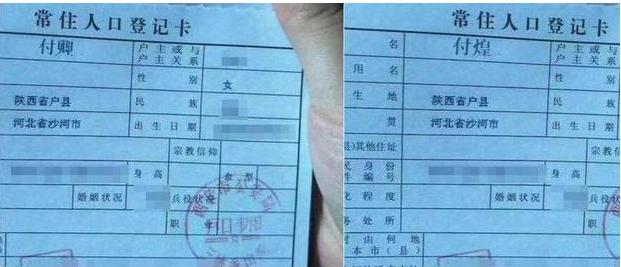 常住人口登记卡
付卿
户主或与
户主关系
性别
女
陕西省户县
民族
河北省沙河市
出生日期
宗教信仰
身高
血型
婚姻状况
兵役状况
职
常住人口登记卡
名
付煌
户主或与
户主关系
用名
性别
生地
陕西省户县
民族
贯
河北省沙河市
出生日期
县)其他住址
宗教信
民身份
件编号
身高
化程度
婚姻状况
兵役
务处所
时由何地
本市(县)